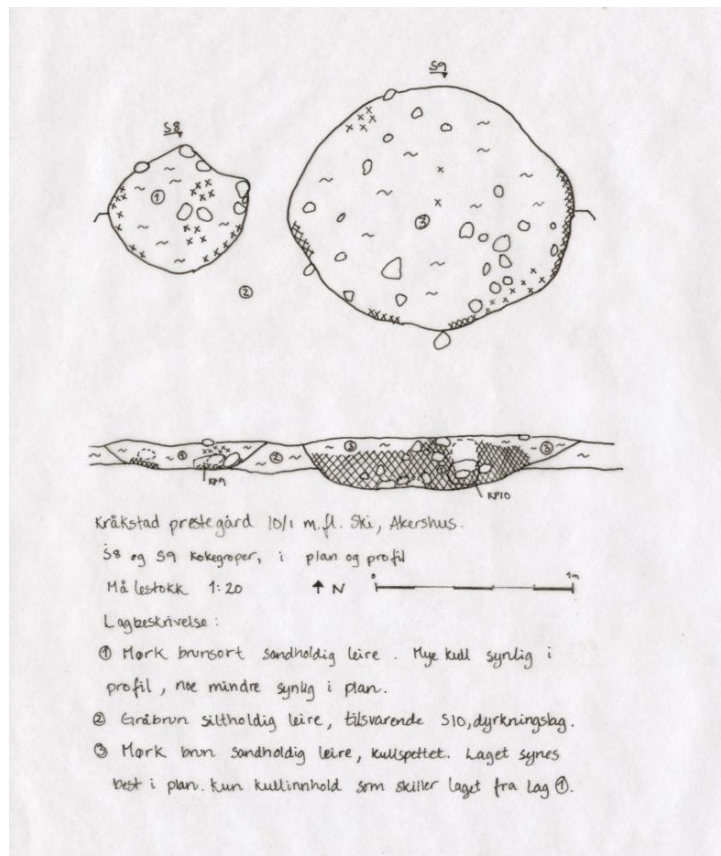 S9
S8
①
③
②
③ ③
① ②
KP9 KP10
Kråkstad prestegård 10/1 m.fl. Ski, Akershus.
S8 og S9 Kokegroper, i plan og profil
Målestokk 1:20 ↑ N 0 1m
Lagbeskrivelse:
① Mørk brunsort sandholdig leire. Mye kull synlig i
profil, noe mindre synlig i plan.
② Gråbrun siltholdig leire, tilsvarende S10, dyrkningslag.
③ Mørk brun sandholdig leire, kullspettet. Laget synes
best i plan. Kun kullinnhold som skiller laget fra Lag ①.